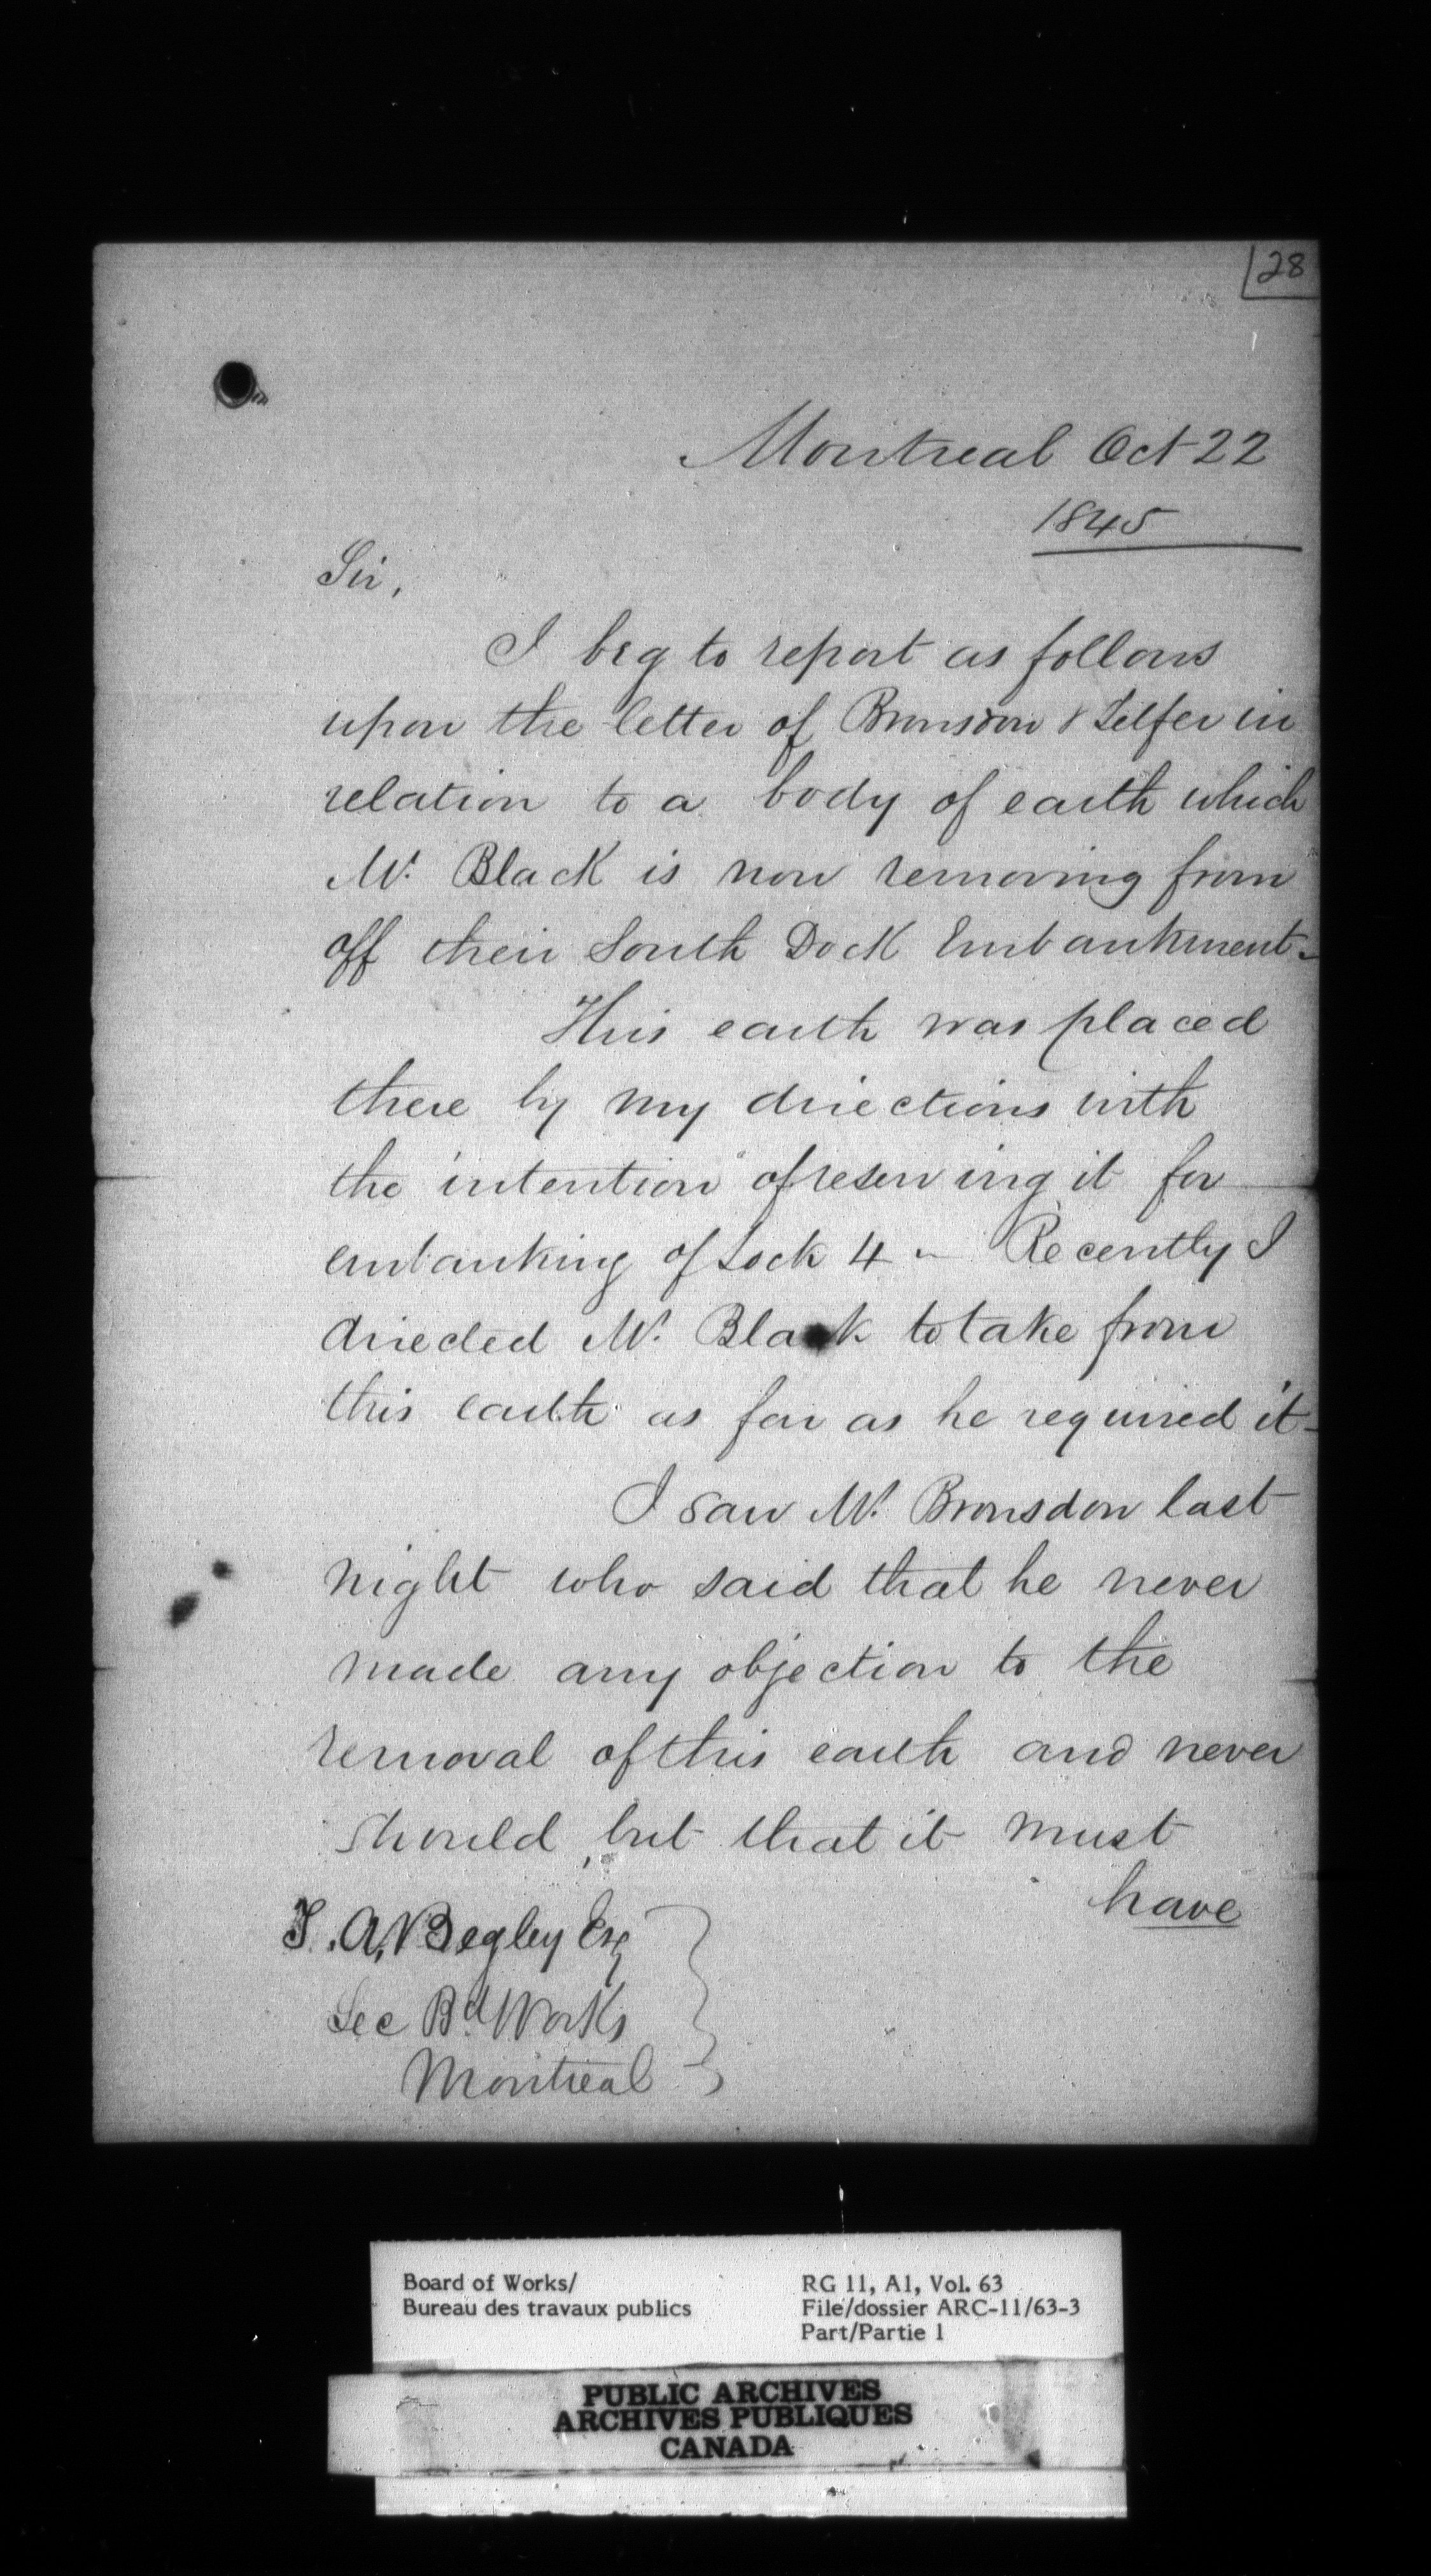 28
Montreal Oct 22
1845
Sir,
I beg to report as follows
upon the letter of Bronsdon & Telfer in
relation to a body of earth which
Mr. Black is now removing from
off their South Dock Embankment -
This earth was placed
there by my directions with
the intention of reserving it for
embanking of Lock 4 - Recently I
directed Mr. Black to take from
this earth as far as he required it -
I saw Mr. Bronsdon last
night who said that he never
made any objection to the
removal of this earth and never
should, but that it must
have
T. A. Begley Esq
Sec Bd Works
Montreal
Board of Works/
Bureau des travaux publics
RG 11, A1, Vol. 63
File/dossier ARC-11/63-3
Part/Partie 1
PUBLIC ARCHIVES
ARCHIVES PUBLIQUES
CANADA